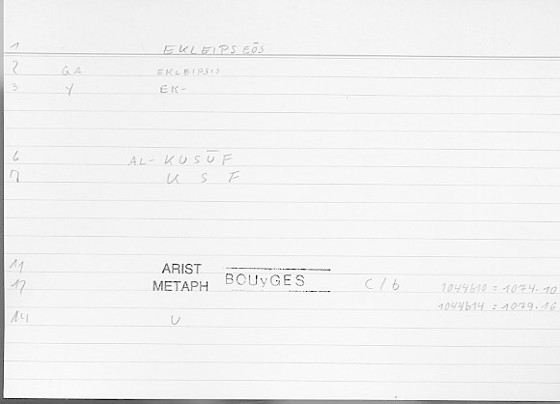 1 EKLEIPSEŌS
2 GA EKLEIPSIS
3 Y EK-
6 AL-KUSŪF
7 K S F
11 ARIST
12 METAPH BOUyGES C/b 1044b10 = 1074.10
1044b14 = 1079.16
14 U